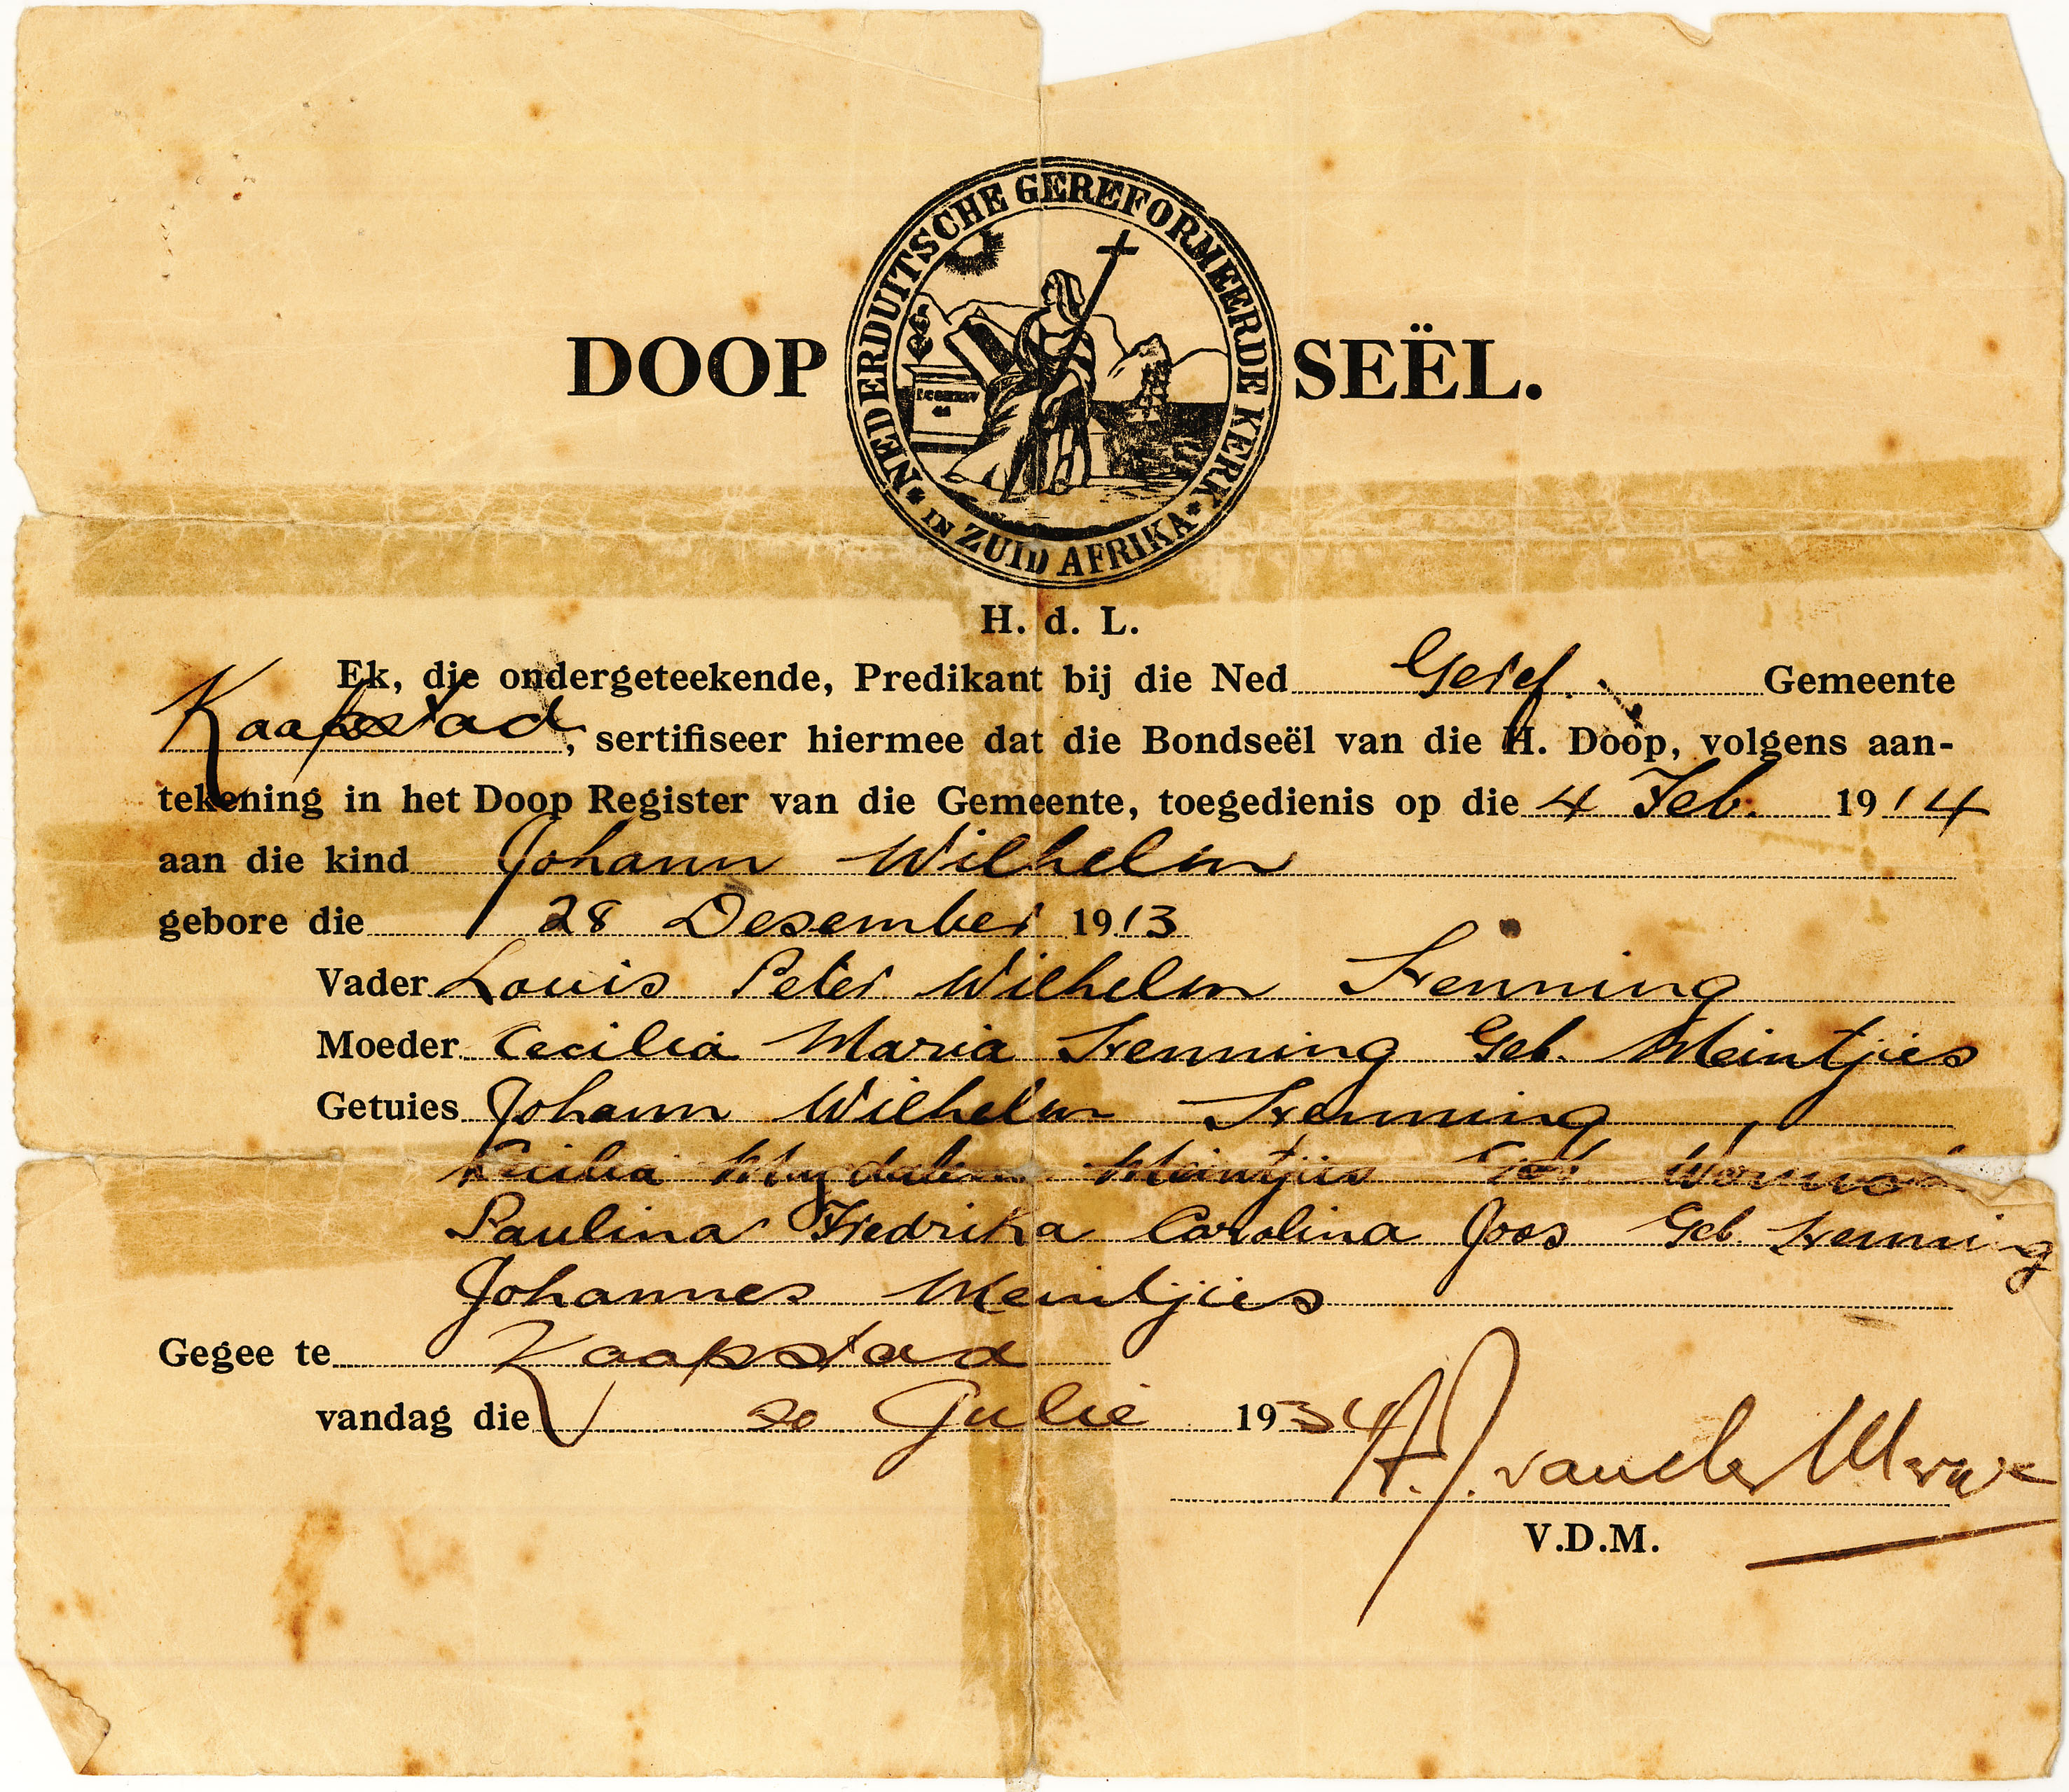 NEDERDUITSCHE GEREFORMEERDE KERK
IN ZUID AFRIKA
DOOP SEËL.
H. d. L.
Ek, die ondergeteekende, Predikant bij die Ned Geref. Gemeente
Kaapstad, sertifiseer hiermee dat die Bondseël van die H. Doop, volgens aan-
tekening in het Doop Register van die Gemeente, toegedienis op die 4 Feb. 1914
aan die kind Johann Wilhelm
gebore die 28 Desember 1913
Vader Louis Peter Wilhelm Henning
Moeder Cecilia Maria Henning Geb. Meintjies
Getuies Johann Wilhelm Henning
Cecilia Magdalena Meintjies Geb.
Paulina Fredrika Carolina Joos Geb. Henning
Johannes Meintjies
Gegee te Kaapstad
vandag die 20 Julie 1934
A. J. van der Merwe
V.D.M.